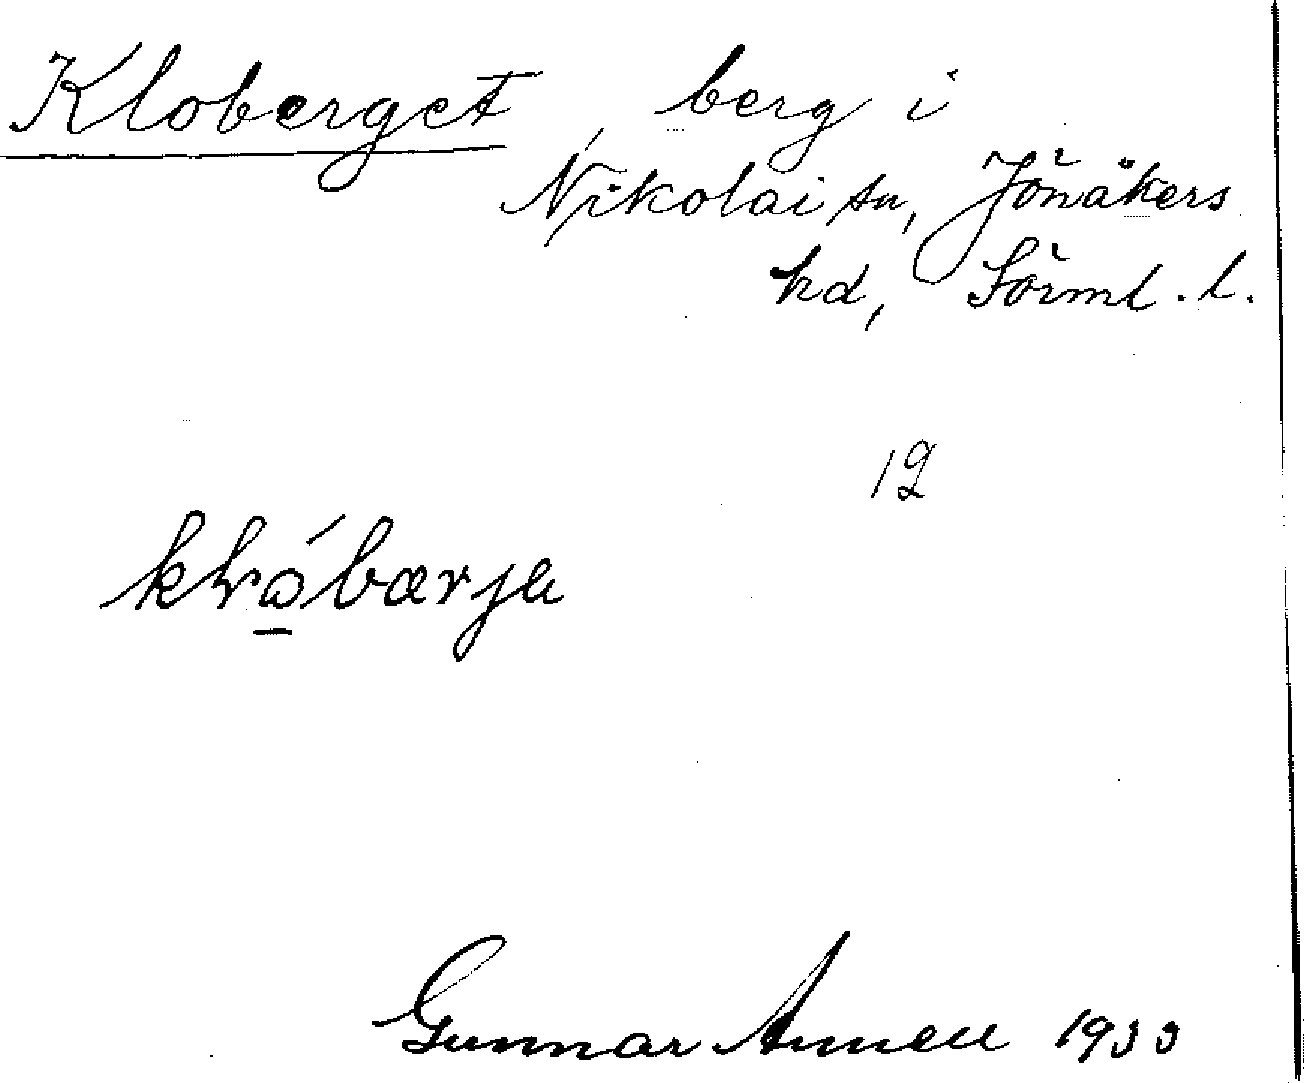 Kloberget, berg i
Nikolai sn, Jönåkers
hd, Sörml. l.
12
Gunnar Annell 1933